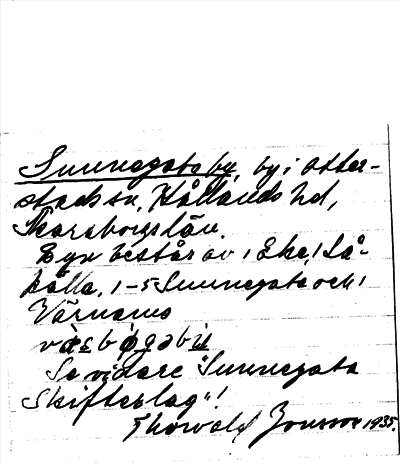 Sunnegatsby, by i Otter-
stads sn, Kållands hd,
Skaraborgs län.
Byn består av 1 Eke, 1 Lå-
kalla, 1-5 Sunnegata och 1
Värnams
Se vidare "Sunnegata
Skifteslag"!
Thorwald Jonsson 1935.